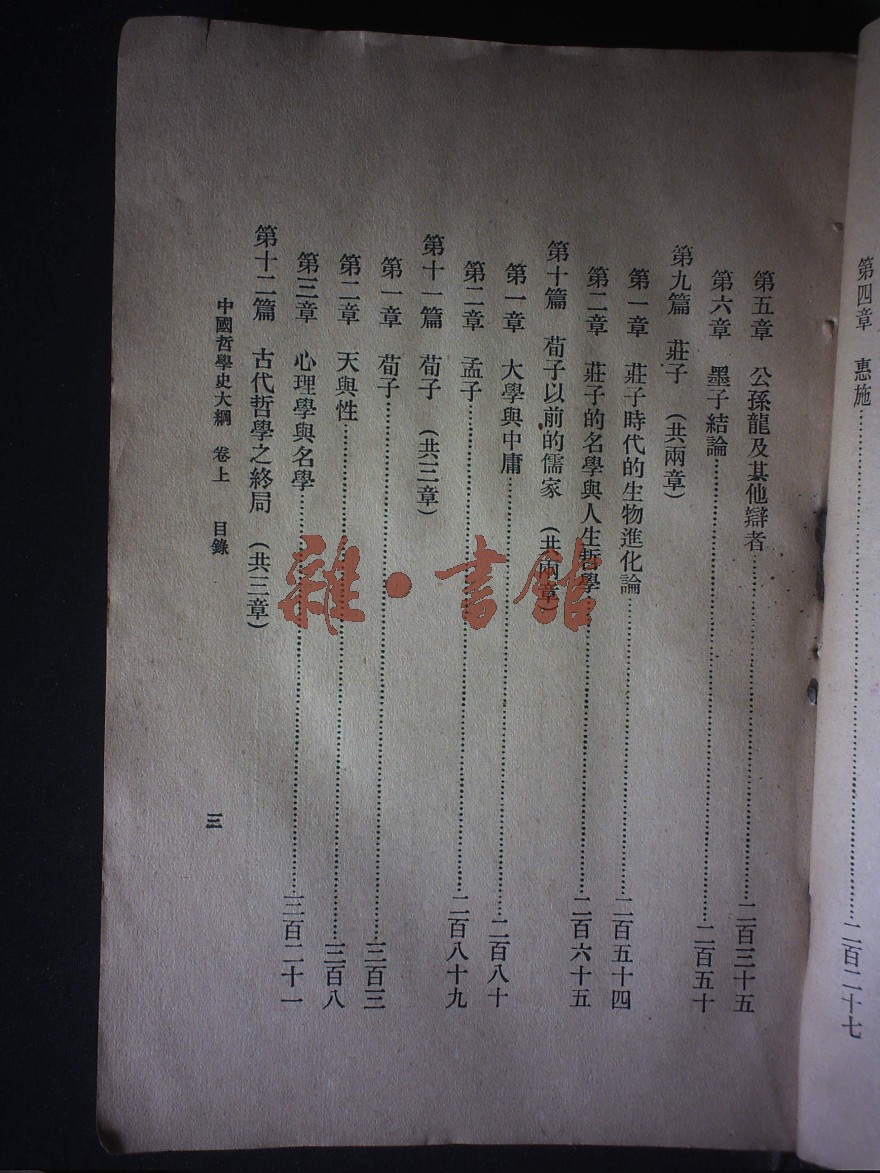 第四章　惠施……二百二十七
第五章　公孫龍及其他辯者……二百三十五
第六章　墨子結論……二百五十
第九篇　莊子　（共兩章）
第一章　莊子時代的生物進化論……二百五十四
第二章　莊子的名學與人生哲學……二百六十五
第十篇　荀子以前的儒家　（共兩章）
第一章　大學與中庸……二百八十
第二章　孟子……二百八十九
第十一篇　荀子　（共三章）
第一章　荀子……三百三
第二章　天與性……三百八
第三章　心理學與名學……三百二十一
第十二篇　古代哲學之終局　（共三章）
中國哲學史大綱　卷上　目錄　三
雜·書館